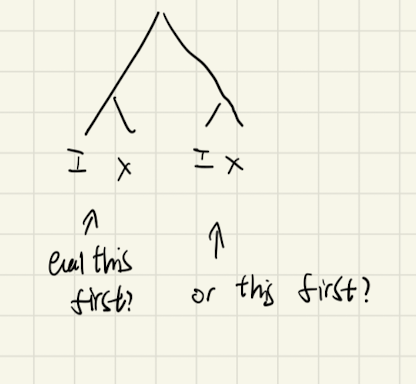 I x I x
eval this
first?
or this first?